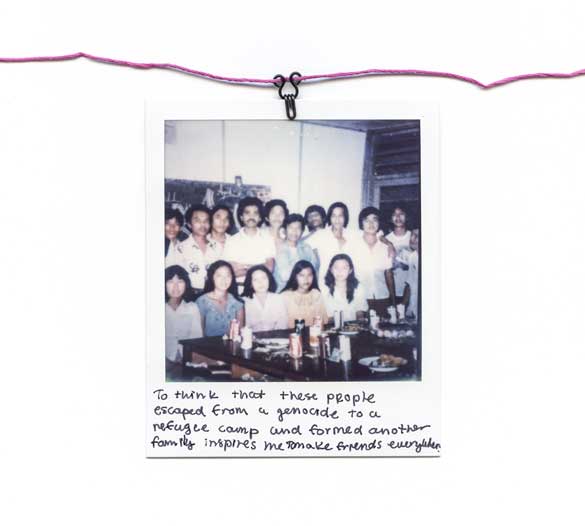 To think that these people
escaped from a genocide to a
refugee camp and formed another
family inspires me to make friends everywhere.